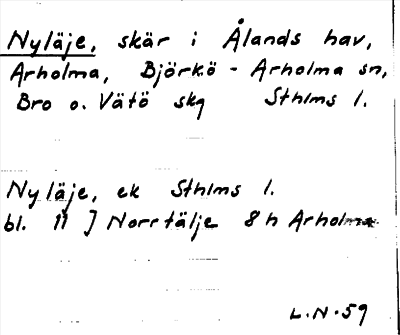 Nyläje, skär i Ålands hav,
Arholma, Björkö - Arholma sn,
Bro o. Vätö skg Sthlms l.
Nyläje, ek Sthlms l.
bl. 11 J Norrtälje 8 h Arholma
L.N.59